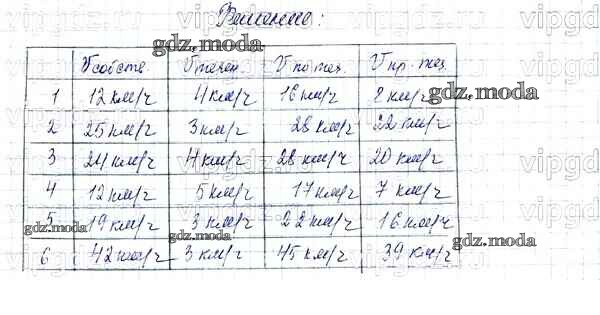 Решение:
gdz.moda
V собств. V течен. V по теч. V пр. теч.
1 12 км/ч 4 км/ч 16 км/ч 8 км/ч
gdz.moda
2 25 км/ч 3 км/ч 28 км/ч 22 км/ч
3 24 км/ч 4 км/ч 28 км/ч 20 км/ч
4 12 км/ч 5 км/ч 17 км/ч 7 км/ч
5 19 км/ч 3 км/ч 22 км/ч 16 км/ч
gdz.moda gdz.moda gdz.moda
6 42 км/ч 3 км/ч 45 км/ч 39 км/ч